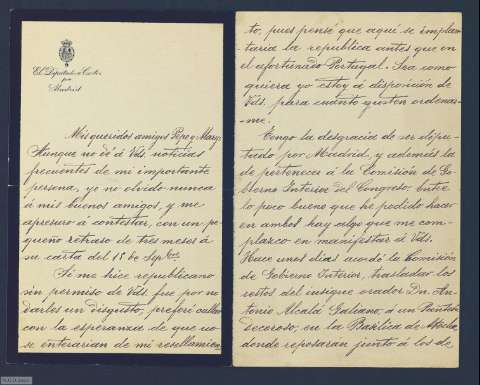 El Diputado a Cortes
por
Madrid
Mis queridos amigos Pepe y Mary:
Aunque no dé á Vds. noticias
frecuentes de mi importante
persona, yo no olvido nunca
á mis buenos amigos, y me
apresuro á contestar, con un pe-
queño retraso de tres meses á
su carta del 15 de Sepbre
Si me hice republicano
sin permiso de Vds. fue por no
darles un disgusto, preferí ocultar
con la esperanza de que no
se enterarian de mi resellamien-
to, pues pensé que aquí se implan-
taria la republica antes que en
el afortunado Portugal. Sea como
quiera yo estoy a disposición de
Vds. para cuanto gusten ordenar-
me.
Tengo la desgracia de ser dipu-
tado por Madrid, y además la
de pertenecer á la Comisión de Go-
bierno Interior del Congreso. Entre
lo poco bueno que he podido hacer
en ambos hay algo que me com-
plazco en manifestar á Vds.
Hace unos dias acordó la Comisión
de Gobierno Interior, trasladar los
restos del insigne orador Dn. An-
tonio Alcalá Galiano, á un Panteón
decoroso, en la Basílica de Atocha,
donde reposaran junto á los de